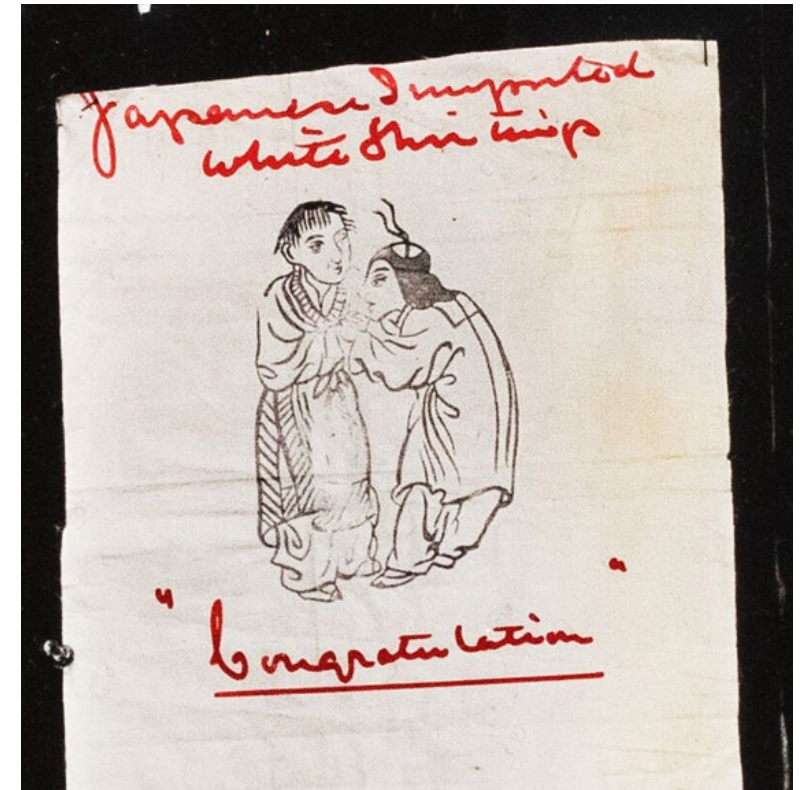 Japanese Imported
White Shirtings
"Congratulation"